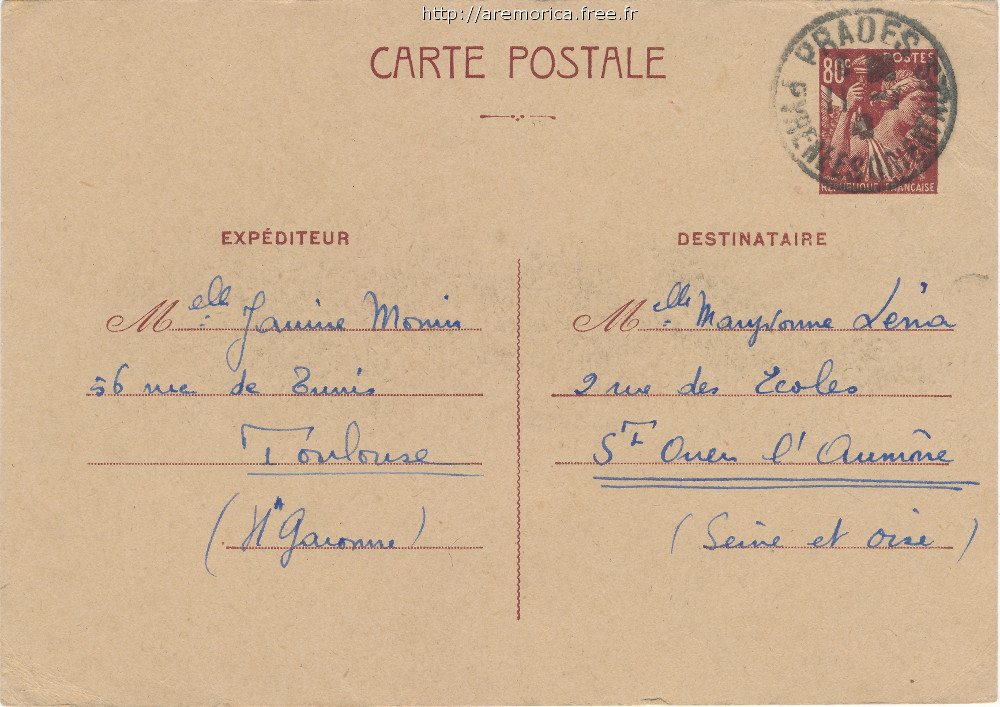 http://aremorica.free.fr
CARTE POSTALE
80c POSTES
REPUBLIQUE FRANÇAISE
PRADES
PYRENEES ORIENTALES
EXPÉDITEUR
Melle Janine Monin
56 rue de Tunis
Toulouse
(Hte Garonne)
DESTINATAIRE
Melle Maryvonne Léna
2 rue des Ecoles
St Ouen l'Aumône
(Seine et Oise)